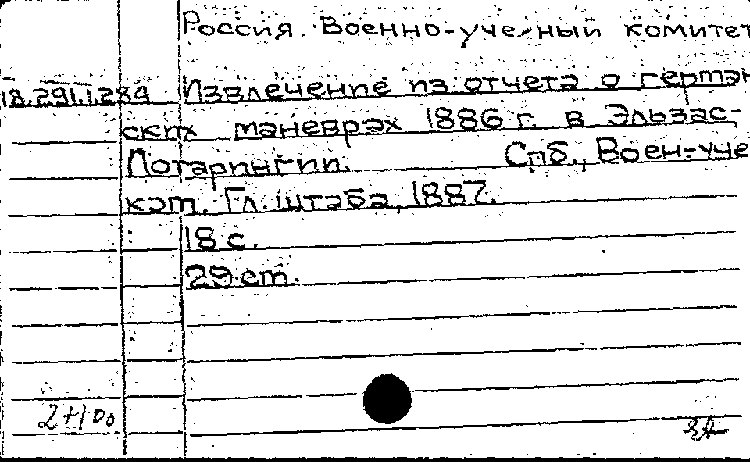 Россия. Военно-ученый комитет
18.291.1.284 Извлечение из отчета о герман
ских маневрах 1886 г. в Эльзас-
Лотарингии. Спб., Воен-уче
ком. Гл. штаба, 1887.
18 с.
29 cm.
2+100